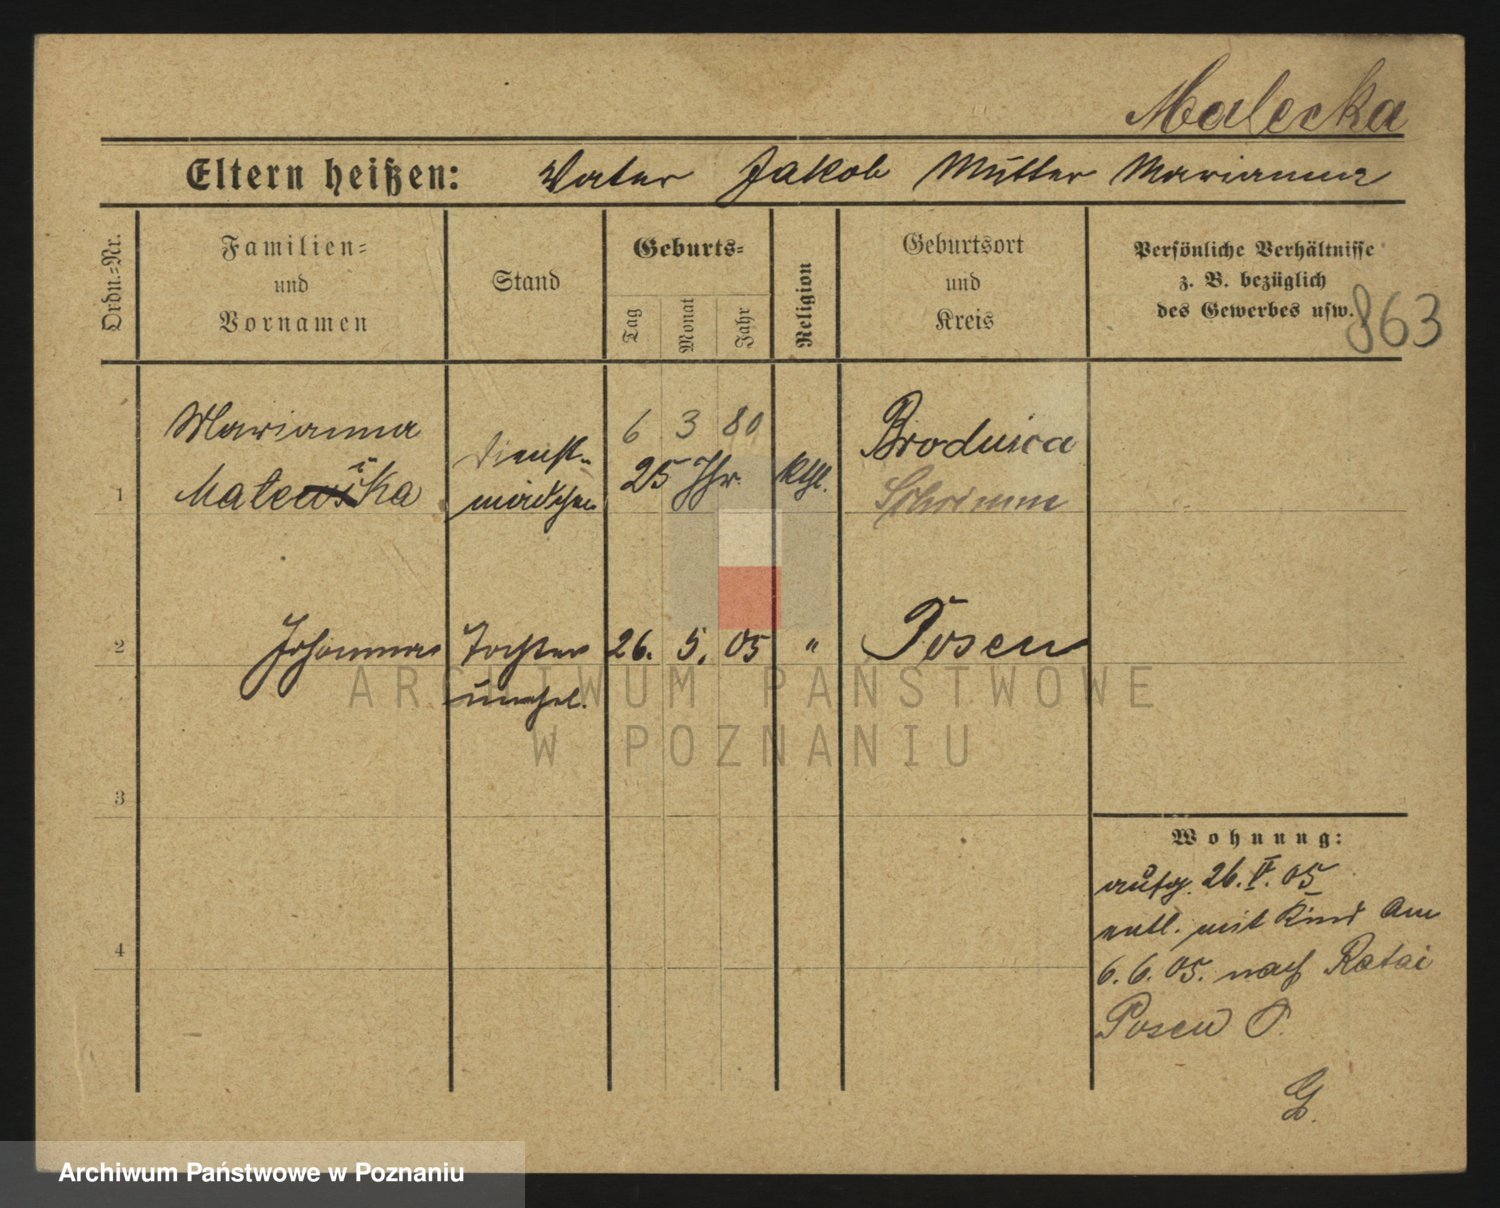 Malecka
Eltern heißen: Vater Jakob Mutter Marianna
Ordn.-Nr.
Familien-
und
Vornamen
Stand
Geburts-
Tag
Monat
Jahr
Religion
Geburtsort
und
Kreis
Persönliche Verhältnisse
z. B. bezüglich
des Gewerbes usw.
863
1
Marianna
Dienst-
mädchen
6 3 80
25 Jhr.
kthl.
Brodnica
Schrimm
2 Johanna Tochter 26. 5. 05 " Posen
unehel.
ARCHIWUM PAŃSTWOWE
W POZNANIU
3
4
Wohnung:
aufg. 26. V. 05
entl. mit Kind am
6. 6. 05. nach Ratai
Posen O.
G.
Archiwum Państwowe w Poznaniu